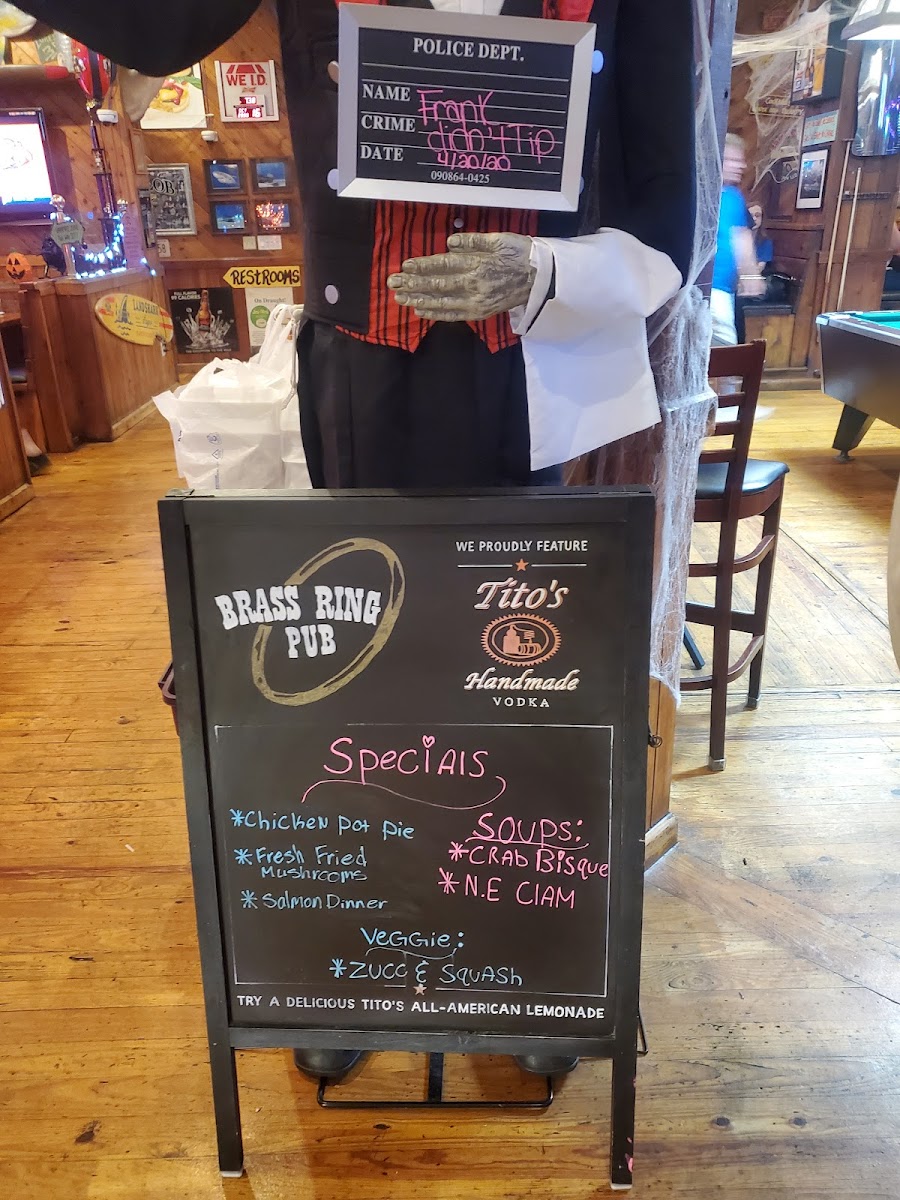 POLICE DEPT.
NAME Frank
CRIME didn't Tip
DATE 4/20/20
090864-0425
WE I.D.
RESTROOMS
LANDSHARK
BRASS RING
PUB
WE PROUDLY FEATURE
Tito's
Handmade
VODKA
Specials
*Chicken Pot Pie
*Fresh Fried
Mushrooms
*Salmon Dinner
Soups:
*Crab Bisque
*N.E Clam
Veggie:
*Zucc & Squash
TRY A DELICIOUS TITO'S ALL-AMERICAN LEMONADE